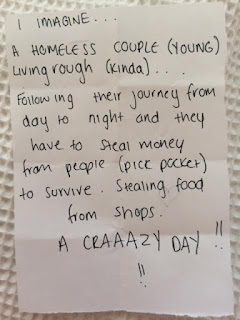 I IMAGINE...
A HOMELESS COUPLE (YOUNG)
Living rough (kinda)...
Following their journey from
day to night and they
have to steal money
from people (pick pocket)
to survive. Stealing food
from shops.
A CRAAAZY DAY !!
!!